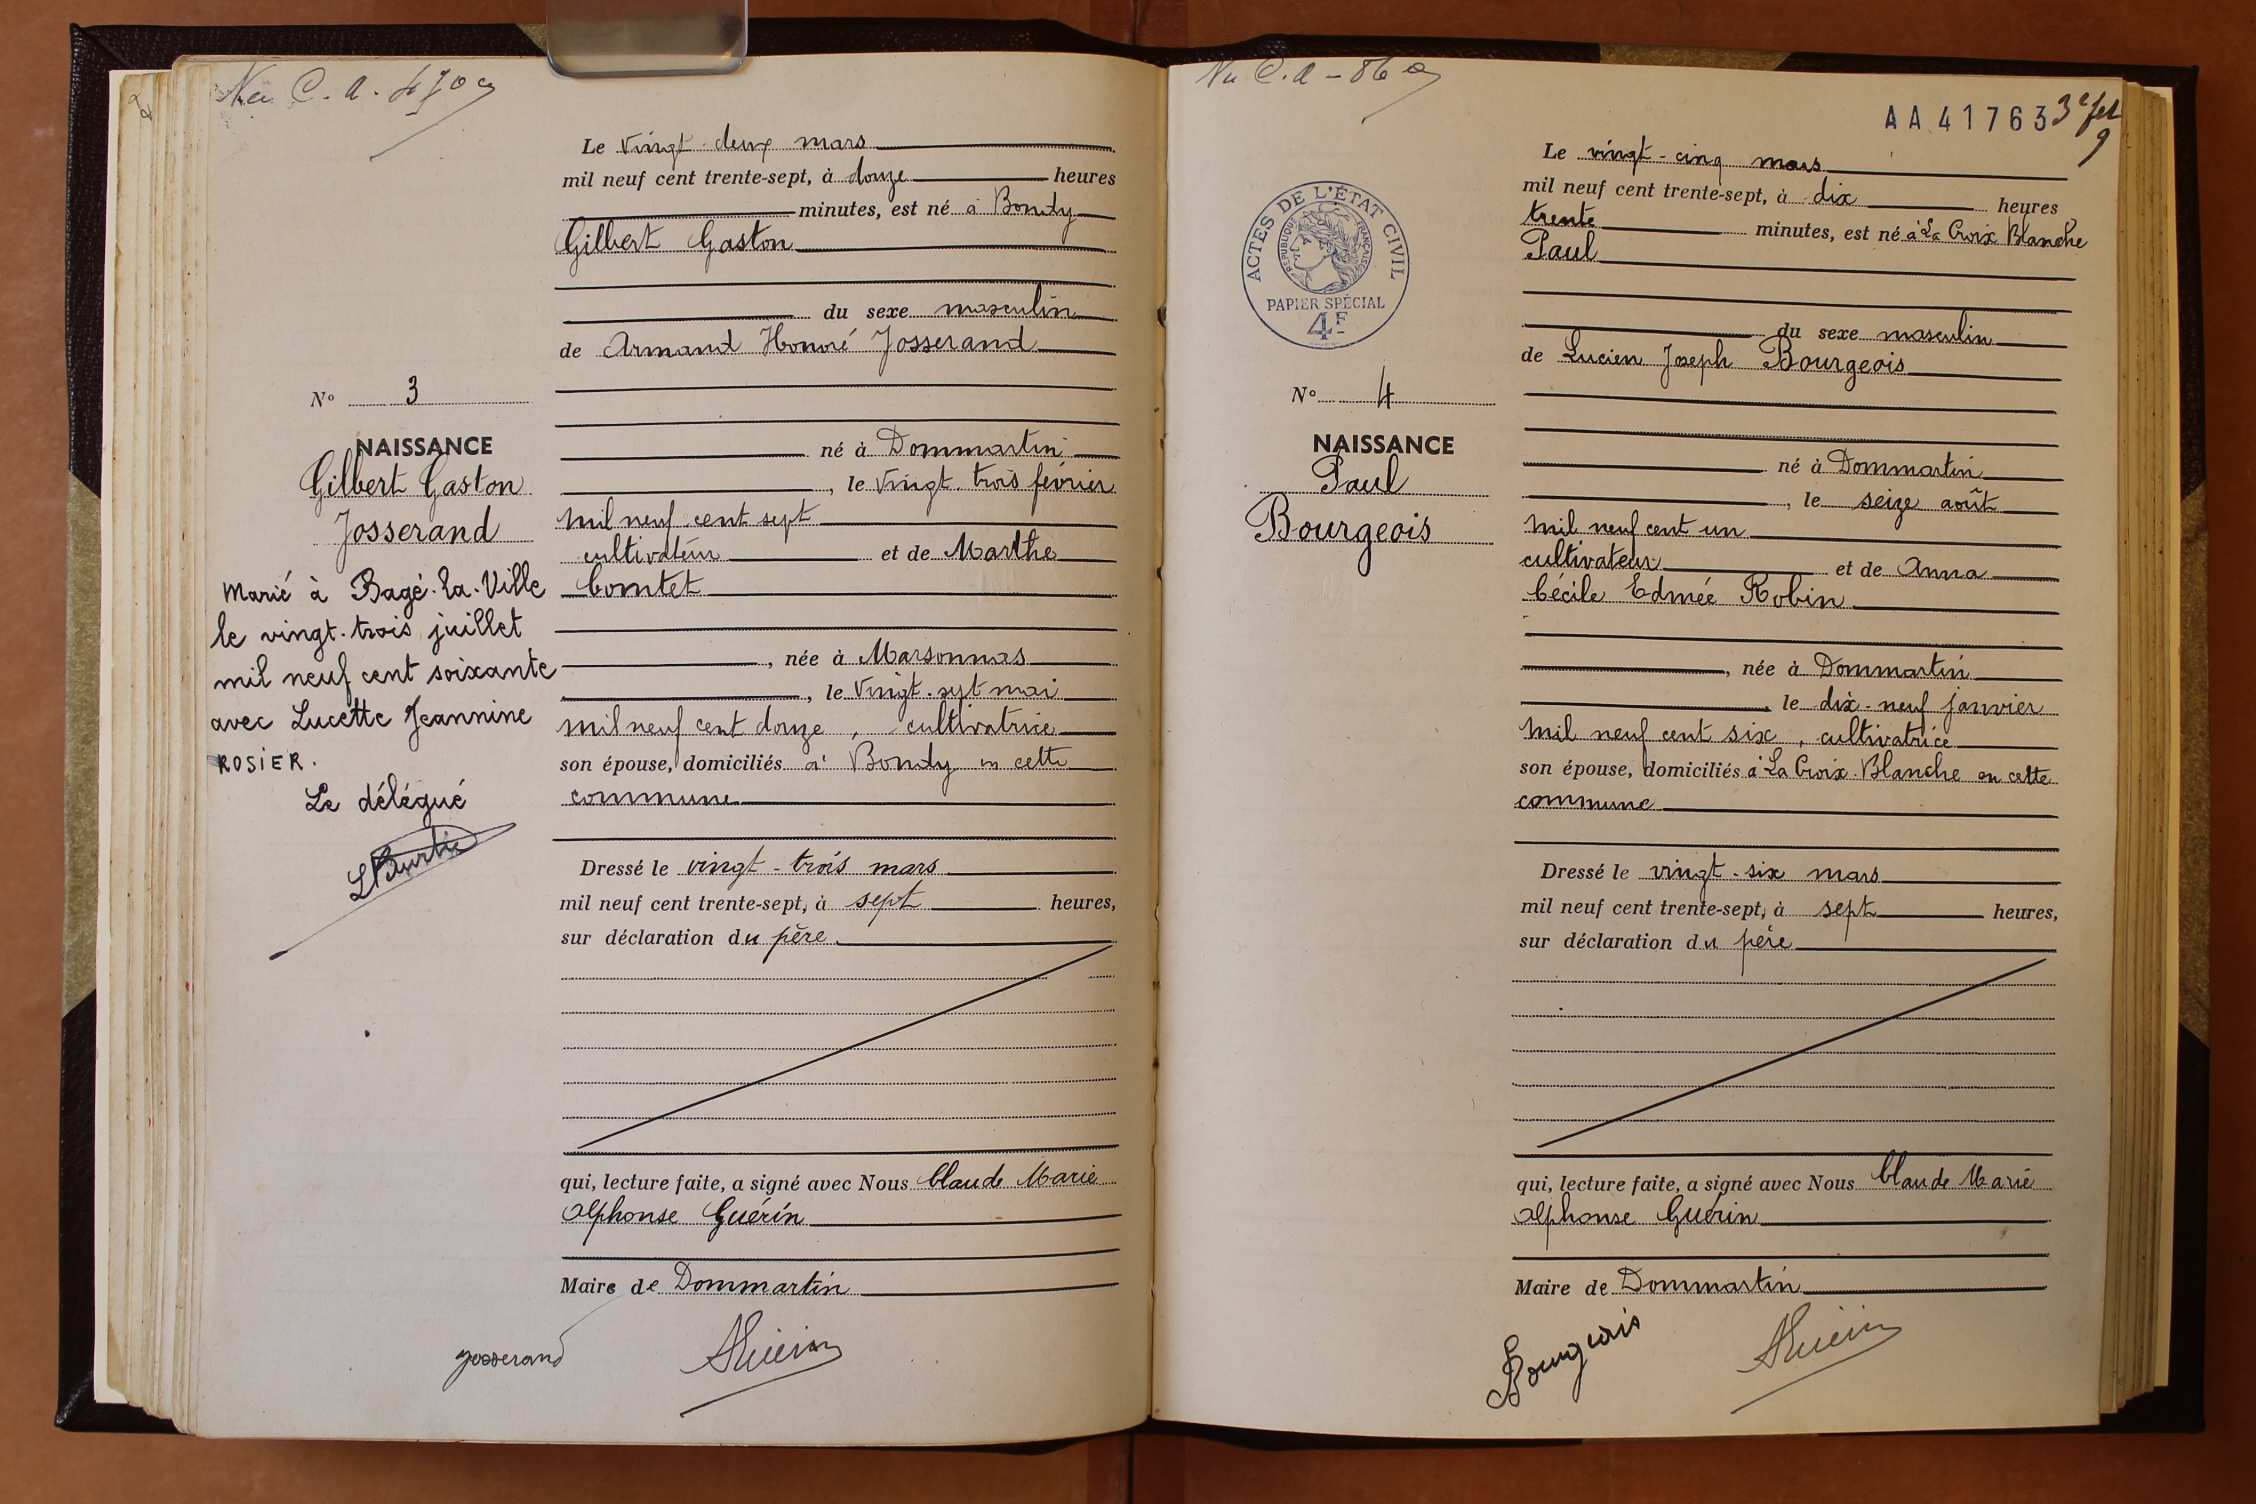 C. a.
N° 3
NAISSANCE
Gilbert Gaston
Josserand
Marié à Bagé-la-Ville
le vingt-trois juillet
mil neuf cent soixante
avec Lucette Jeannine
ROSIER.
Le délégué
Le vingt-deux mars
mil neuf cent trente-sept, à douze heures
minutes, est né à Bondy
Gilbert Gaston
du sexe masculin
de Armand Honoré Josserand
né à Dommartin
, le vingt-trois février
mil neuf cent sept
cultivateur et de Marthe
Comtet
, née à Marsonnas
, le vingt-sept mai
mil neuf cent douze, cultivatrice
son épouse, domiciliés à Bondy en cette
commune
Dressé le vingt-trois mars
mil neuf cent trente-sept, à sept heures,
sur déclaration du père
qui, lecture faite, a signé avec Nous Claude Marie
Alphonse Guérin
Maire de Dommartin
Josserand
AGuérin
Vu C. a - 86
AA 41763 3e
9
ACTES DE L'ÉTAT CIVIL
RÉPUBLIQUE FRANÇAISE
PAPIER SPÉCIAL
4F
N° 4
NAISSANCE
Paul
Bourgeois
Le vingt-cinq mars
mil neuf cent trente-sept, à dix heures
trente minutes, est né à La Croix Blanche
Paul
du sexe masculin
de Lucien Joseph Bourgeois
né à Dommartin
, le seize août
mil neuf cent un
cultivateur et de Anna
Cécile Edmée Robin
, née à Dommartin
, le dix-neuf janvier
mil neuf cent six, cultivatrice
son épouse, domiciliés à La Croix-Blanche en cette
commune
Dressé le vingt-six mars
mil neuf cent trente-sept, à sept heures,
sur déclaration du père
qui, lecture faite, a signé avec Nous Claude Marie
Alphonse Guérin
Maire de Dommartin
Bourgeois
AGuérin